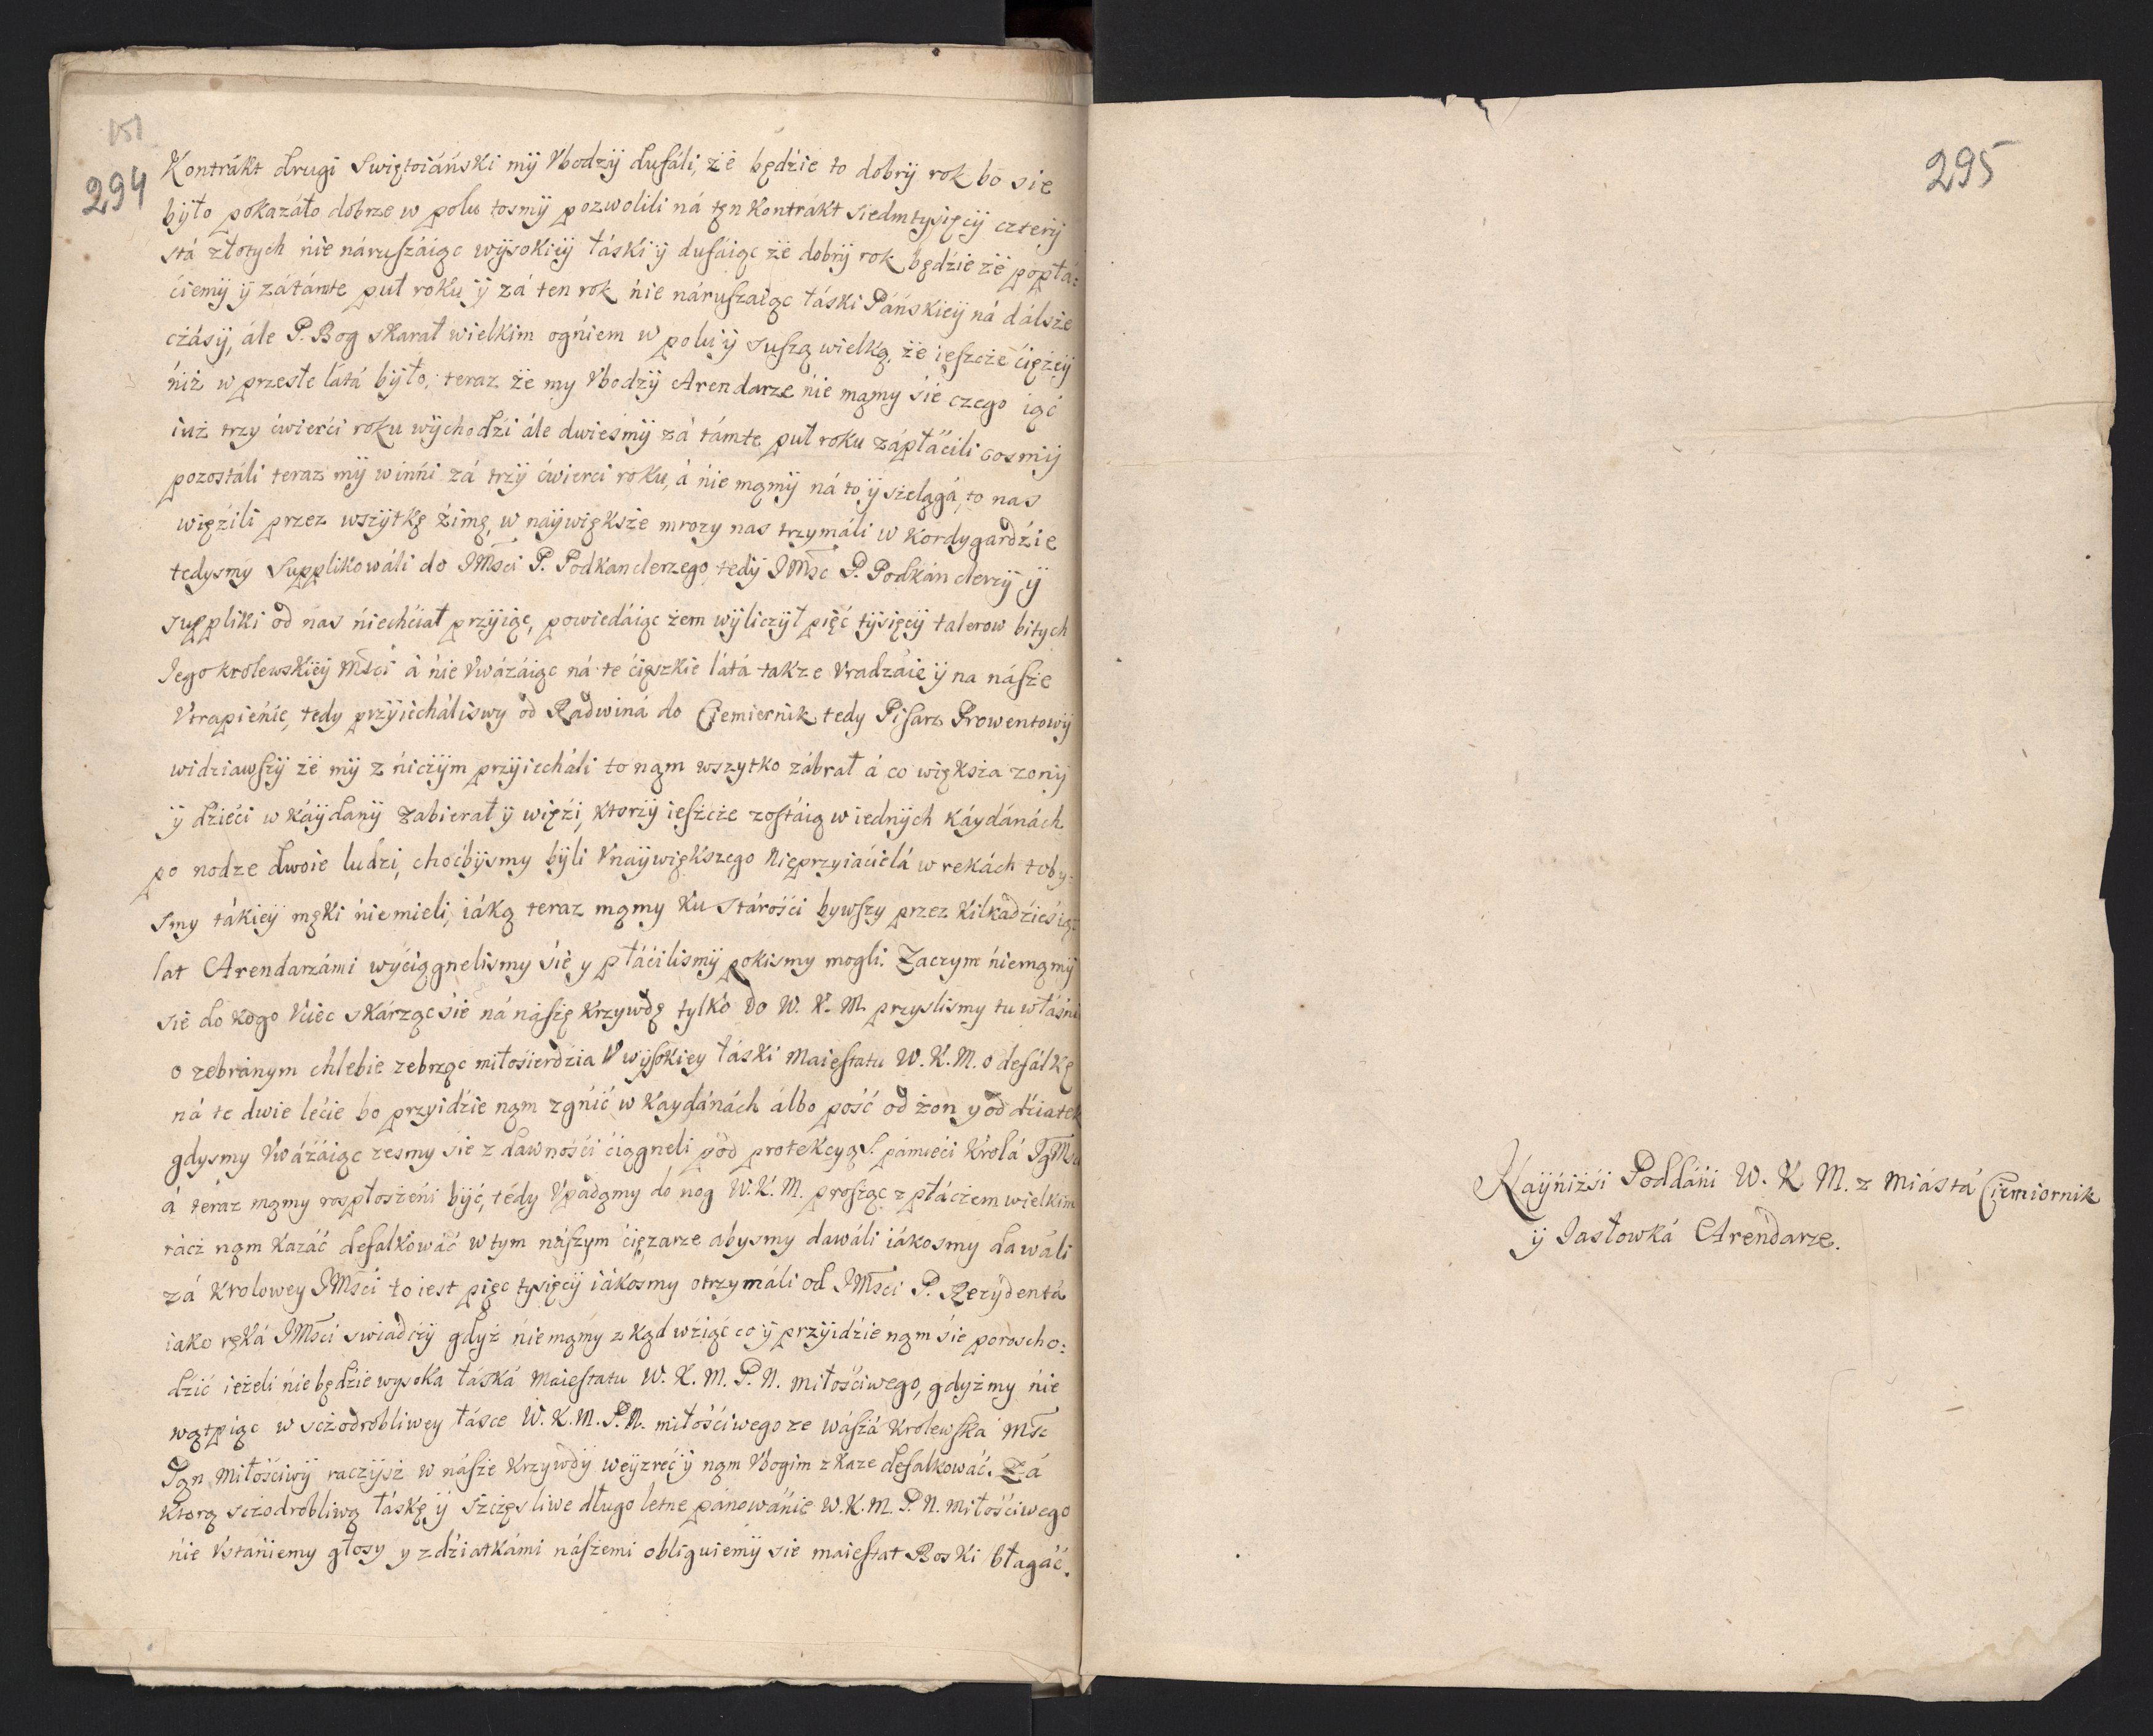 151
294
Kontrákt drugi Swiętoiáński mÿ Vbodzÿ dufáli, że będźie to dobrÿ rok bo sie
bÿło pokazáło dobrze w polu tosmÿ pozwolili ná tęn Kontrakt siedmtysięcÿ czterÿ
stá złotych nie náruszáiąc wÿsokieÿ łáski ÿ dufáiąc że dobrÿ rok będźie że popłá-
ćiemÿ ÿ zátámte puł roku ÿ zá ten rok nie náruszaiąc łáski Páńskieÿ ná dálsze
czásÿ, ále P. Bog skarał wielkim ogniem w polu ÿ suszą wielką, że ieszcze ćięzeÿ
niż w przeszłe látá bÿło, teraz że my Vbodzÿ Arendarze nie mąmy śie czego iąć
iuż trzy ćwierći roku wÿchodźi ále dwiesmÿ zá támte puł roku zápłáćili cosmÿ
pozostáli teraz mÿ winńi zá trzÿ ćwierci roku, á nie mąmÿ ná to ÿ szelągá, to nas
więźili przez wszÿtkę źimę, w naÿwiększe mrozy nas trzymáli w Kordygardźie
tedysmy Supplikowáli do JMsći P. Podkanclerzego, tedÿ JMsc P. Podkánclerzÿ ÿ
suppliki od nas niechćiał przÿiąc, powiedáiąc żem wÿliczÿł pięć tÿsięcÿ talerow bitych
Jego krolewskieÿ Msći á nie Vwáżáiąc ná te ćięszkie látá takze Vradzáie ÿ na násze
Vtrapienie, tedy przÿiecháliswy od Radwiná do Ciemiernik tedy Pisarz Prowentowÿ
widziawszÿ że mÿ z niczÿm przÿiecháli to nąm wszytko zábrał á co większa zonÿ
ÿ dźieći w káÿdanÿ zabierał ÿ więźi, ktorzÿ ieszcze zostáią w iednÿch káydánách
po nodze dwoie ludzi, choćbÿsmy bÿli Vnaÿwiększego Nieprzyiaćielá w rekách toby-
smy tákieÿ męki niemieli, iáką teraz mąmy ku stárośći bywszy przez kilkadźieśiąt
lat Arendarzámi wyćiągnelismy śie y płáćilismÿ pokismy mogli. Zaczym niemąmÿ
sie do kogo Vćiec skárząc śie ná nászę krzywdę tylko do W. K. M. przyslismy tu właśni
o zebránym chlebie zebrząc miłośierdzia V wÿsokiey łáski Maiestatu W. K. M. o defálkę
ná te dwie lećie bo przyidźie nąm zgnić w kaydánách álbo pość od żon y od dźiatek
gdysmy Vwáżáiąc zesmy śie z dawnośći ćiągneli pod protekcyą S. pámieći Krolá JgMsći
á teraz mąmy rospłoszeni być, tedy Vpádąmy do nog W. K. M. prosząc z płáczem wielkim
rácż nąm kazáć defalkowáć w tym nászym ćięzarze abysmy dawáli iákosmy dawáli
zá Krolowey JMsći to iest pięc tysięcÿ iákosmy otrzymáli od JMsći P. Rezÿdentá
iako ręká JMsći swiadczÿ gdyż niemąmy z kąd wźiąć co ÿ przÿidźie nąm śie porozcho-
dźić ieżeli nie będźie wysoka łáská Maiestatu W. K. M. P. N. miłośćiwego, gdyżmy nie
wątpiąc w sczodrobliwey łásce W. K. M. P. N. miłośćiwego ze wászá Krolewska Msc
Pąn Miłośćiwÿ raczÿsz w násze krzywdÿ weÿzreć ÿ nąm Vbogim zkaze defalkowáć. Zá
ktorą sczodrobliwą łáskę ÿ szczęsliwe długo letne pánowánie W. K. M. P. N. miłośćiwego
nie Vstániemy głosy y zdźiatkámi nászemi obliguiemÿ sie maiestat Boski błagáć.
295
Naÿniżśi Poddáni W. K M. z miástá Ciemiernik
ÿ Jasłowká Arendarze.